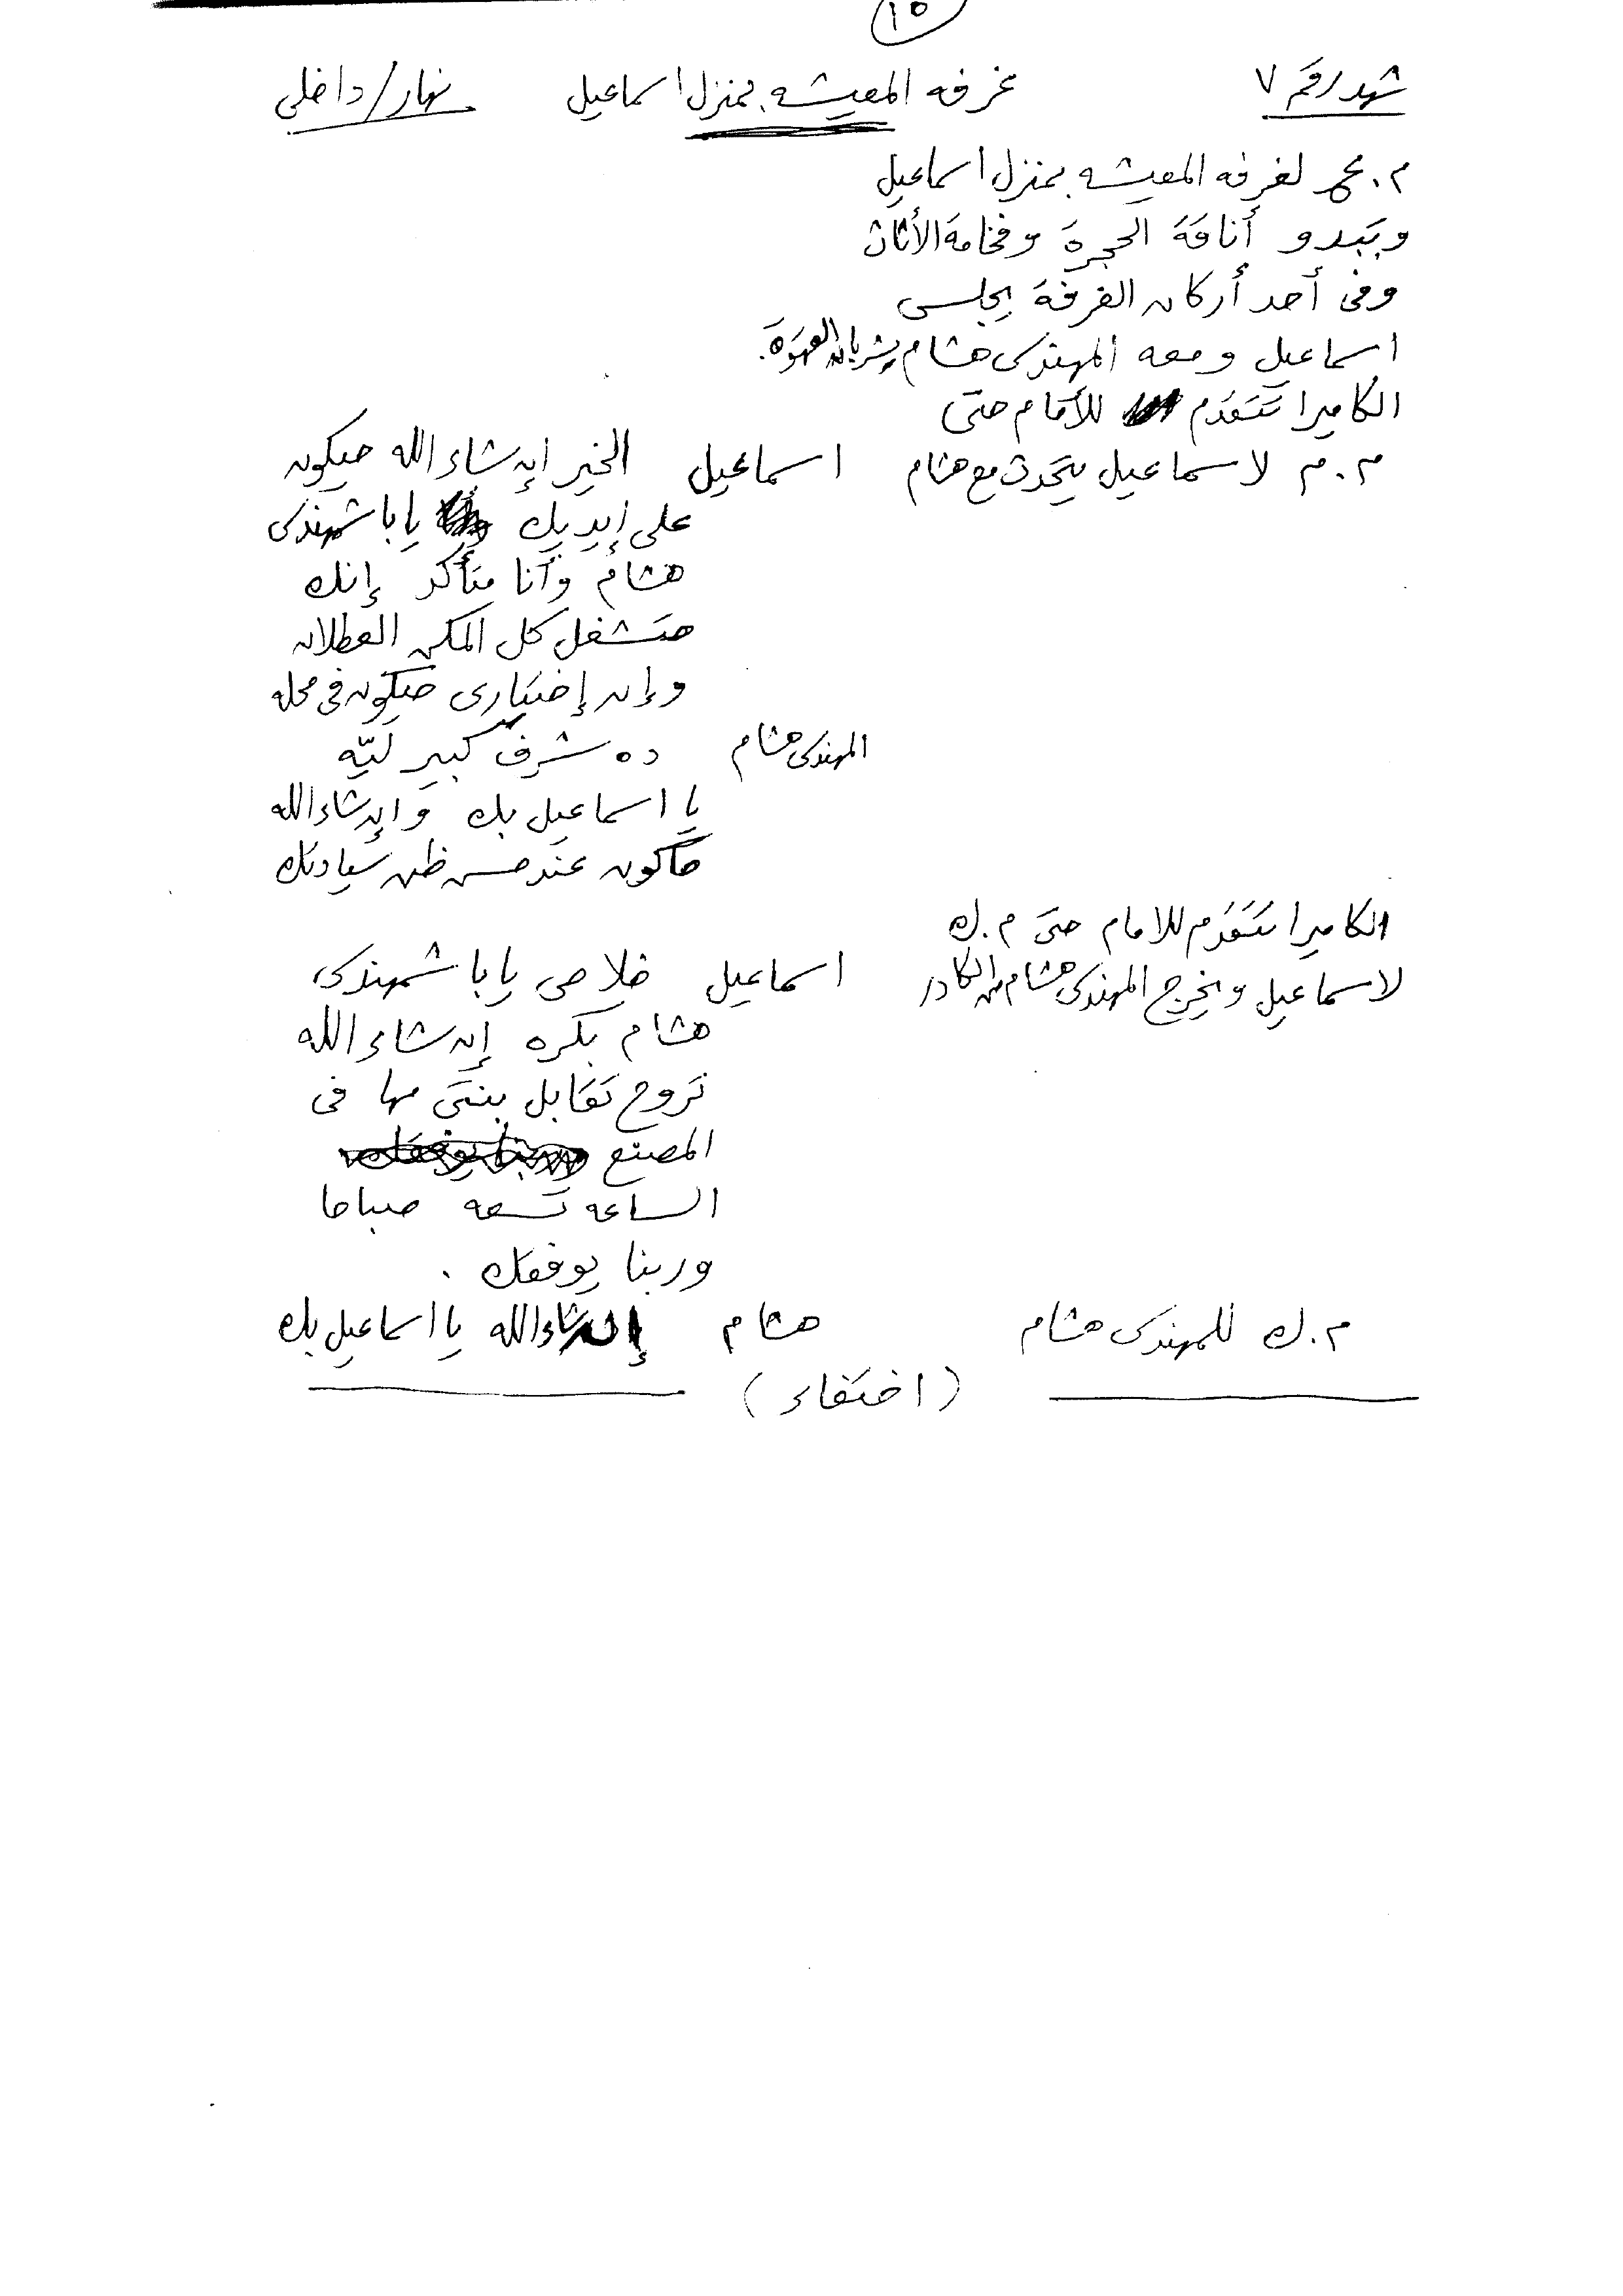 ١٥
شهد رقم ٧ غرفه المعيشه بمنزل اسماعيل نهار/داخلى
م.ع لغرفه المعيشه بمنزل اسماعيل
وتبدو أناقة الحجرة وفخامة الأثاث
وفى أحد أركان الغرفة يجلس
اسماعيل ومعه المهندس هشام يشربان القهوة.
الكاميرا تتقدم للأمام حتى
م.م لاسماعيل يتحدث مع هشام
اسماعيل الخير إن شاء الله حيكون
على إيديك يا باشمهندس
هشام وأنا متأكد إنك
هتشغل كل المكن العطلان
وإن إختيارى حيكون فى محله
المهندس هشام ده شرف كبير ليّه
يا اسماعيل بك وإن شاء الله
حأكون عند حسن ظن سيادتك
الكاميرا تتقدم للامام حتى م.ك
لاسماعيل ويخرج المهندس هشام من الكادر
اسماعيل خلاص يا باشمهندس
هشام بكره إن شاء الله
تروح تقابل بنتى مها فى
المصنع
الساعه تسعه صباحا
وربنا يوفقك .
م.ك للمهندس هشام هشام إن شاء الله يا اسماعيل بك
(اختفاء)